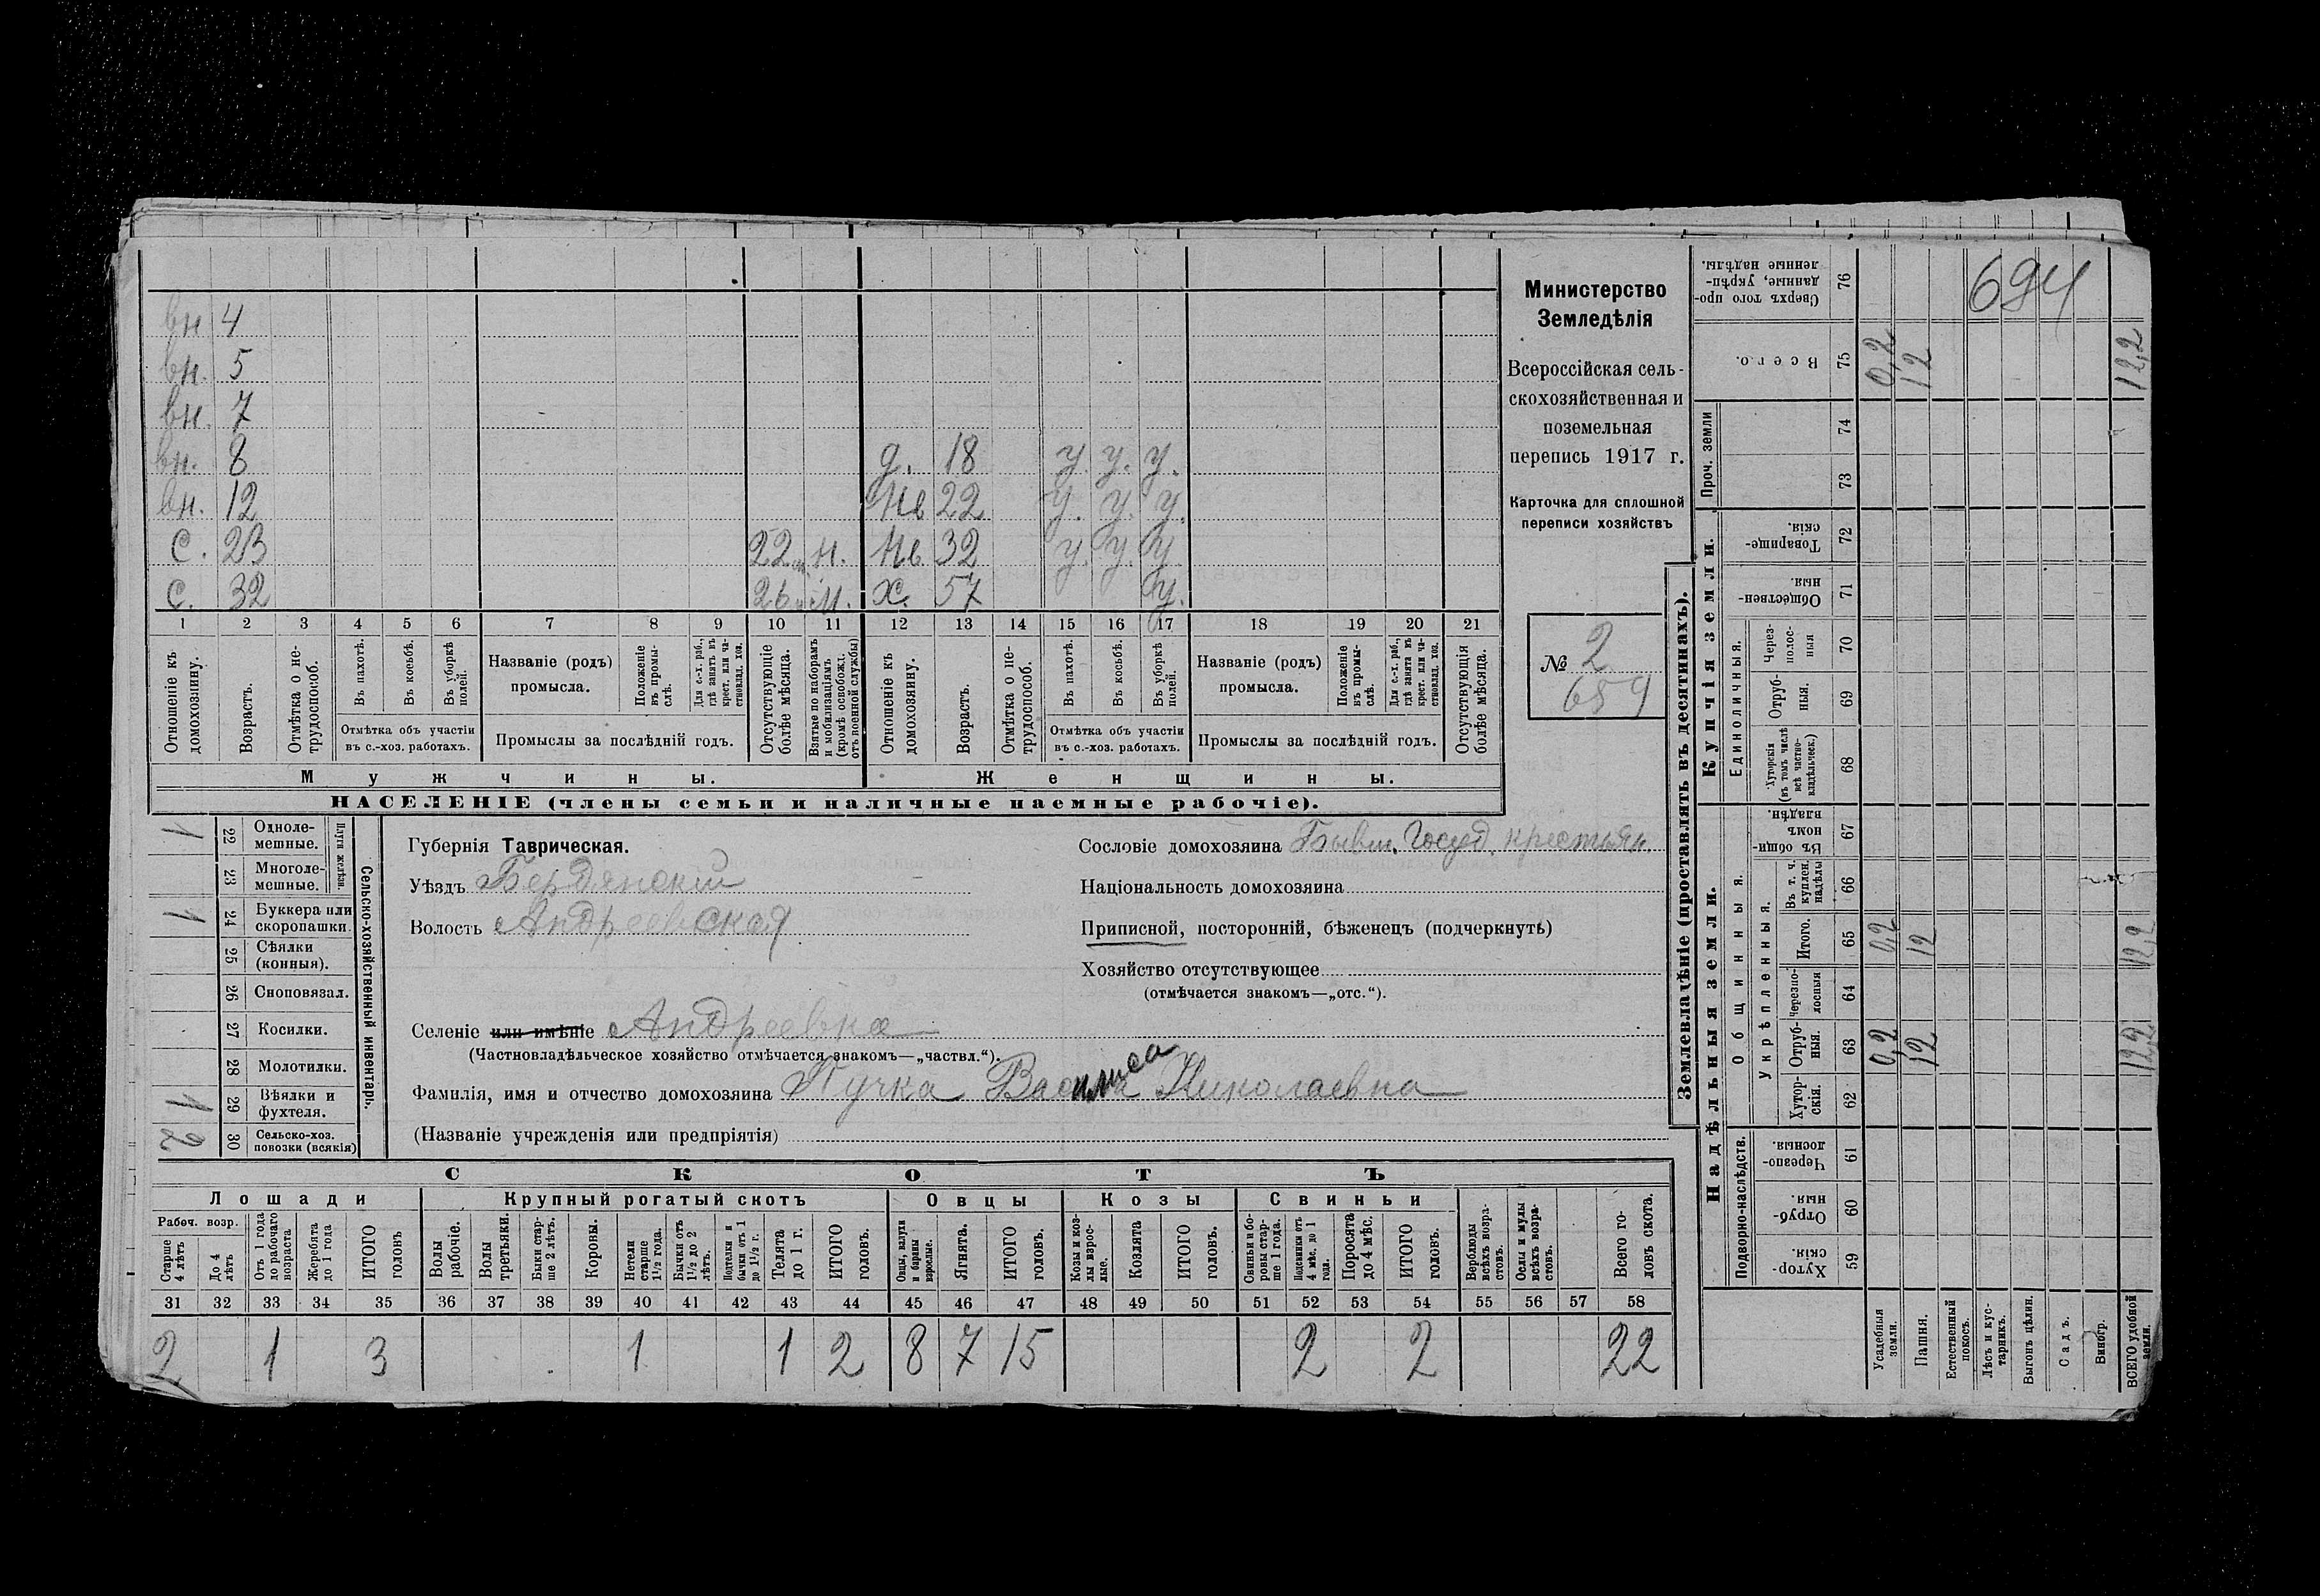 вн 4
вн. 5
вн. 7
вн. 8 д. 18 у. у. у.
вн. 12 нв 22 у. у. у.
С. 23 22 м. нв 32 у. у. у
С. 32 26 м. х. 57 у.
1 2 3 4 5 6 7 8 9 10 11 12 13 14 15 16 17 18 19 20 21
Отношеніе къ домохозяину.
Возрастъ.
Отмѣтка о нетрудоспособ.
Въ пахотѣ.
Въ косьбѣ.
Въ уборкѣ полей.
Отмѣтка объ участіи въ с.-хоз. работахъ.
Названіе (родъ) промысла.
Положеніе въ промыслѣ.
Для с.-х. раб., гдѣ занятъ въ крест. или частновлад. хоз.
Промыслы за послѣдній годъ.
Отсутствующіе болѣе мѣсяца.
Взятые по наборамъ и мобилизаціямъ (кромѣ освобожд. отъ военной службы)
Отношеніе къ домохозяину.
Возрастъ.
Отмѣтка о нетрудоспособ.
Въ пахотѣ.
Въ косьбѣ.
Въ уборкѣ полей.
Отмѣтка объ участіи въ с.-хоз. работахъ.
Названіе (родъ) промысла.
Положеніе въ промыслѣ.
Для с.-х. раб., гдѣ занята въ крест. или частновлад. хоз.
Промыслы за послѣдній годъ.
Отсутствующія болѣе мѣсяца.
Мужчины.
Женщины.
НАСЕЛЕНІЕ (члены семьи и наличные наемные рабочіе).
Министерство
Земледѣлія
Всероссійская сель-
скохозяйственная и
поземельная
перепись 1917 г.
Карточка для сплошной
переписи хозяйствъ
№ 2
659
1 22 Одноле-мешные.
23 Многоле-мешные.
Плуги желѣзн.
1 24 Буккера или скоропашки.
25 Сѣялки (конныя).
26 Сноповязал.
27 Косилки.
28 Молотилки.
1 29 Вѣялки и фухтеля.
2 30 Сельско-хоз. повозки (всякія)
Сельско-хозяйственный инвентарь.
Губернія Таврическая.
Уѣздъ Бердянскій
Волость Андреевская
Селеніе или имѣніе Андреевка
(Частновладѣльческое хозяйство отмѣчается знакомъ—„частвл.“).
Фамилія, имя и отчество домохозяина Пучка Василиса Николаевна
(Названіе учрежденія или предпріятія)
Сословіе домохозяина Бывш. Госуд. крестьян.
Національность домохозяина
Приписной, посторонній, бѣженецъ (подчеркнуть)
Хозяйство отсутствующее
(отмѣчается знакомъ—„отс.“).
СКОТЪ
Лошади
Крупный рогатый скотъ
Овцы
Козы
Свиньи
Рабоч. возр.
Старше 4 лѣтъ
До 4 лѣтъ
Отъ 1 года до рабочаго возраста
Жеребята до 1 года
ИТОГО головъ
Волы рабочіе.
Волы третьяки.
Быки старше 2 лѣтъ.
Коровы.
Нетели старше 1½ года.
Бычки отъ 1½ до 2 лѣтъ.
Подтелки и бычки отъ 1 до 1½ г.
Телята до 1 г.
ИТОГО головъ.
Овцы, валухи и бараны взрослые.
Ягнята.
ИТОГО головъ.
Козы и козлы взрослые.
Козлята
ИТОГО головъ.
Свиньи и боровы старше 1 года.
Подсвинки отъ 4 мѣс. до 1 года.
Поросята до 4 мѣс.
ИТОГО головъ.
Верблюды всѣхъ возрастовъ.
Ослы и мулы всѣхъ возрастовъ.
Всего головъ скота.
31 32 33 34 35 36 37 38 39 40 41 42 43 44 45 46 47 48 49 50 51 52 53 54 55 56 57 58
2 1 3 1 1 2 8 7 15 2 2 22
Землевладѣніе (проставлять въ десятинахъ).
694
Сверхъ того проданные, укрѣпленные надѣлы. 76
Всего. 75 0,2 12 12,2
Проч. земли
74
73
Купчія земли.
Товарищескія. 72
Общественныя. 71
Единоличныя.
Черезполосныя 70
Отрубныя. 69
Хуторскія (въ томъ числѣ всѣ частновладѣльческ.) 68
Надѣльныя земли.
Общинныя.
Въ общинномъ владѣн. 67
Укрѣпленныя.
Въ т. ч. куплен. надѣлы 66
Итого. 65 0,2 12 12,2
Черезполосныя 64
Отрубныя. 63 0,2 12 12,2
Хуторскія. 62
Подворно-наслѣдств.
Черезполосныя. 61
Отрубныя. 60
Хуторскія. 59
Усадебныя земли.
Пашня.
Естественный покосъ.
Лѣсъ и кустарникъ.
Выгонъ цѣлин.
Садъ.
Виногр.
ВСЕГО удобной земли.